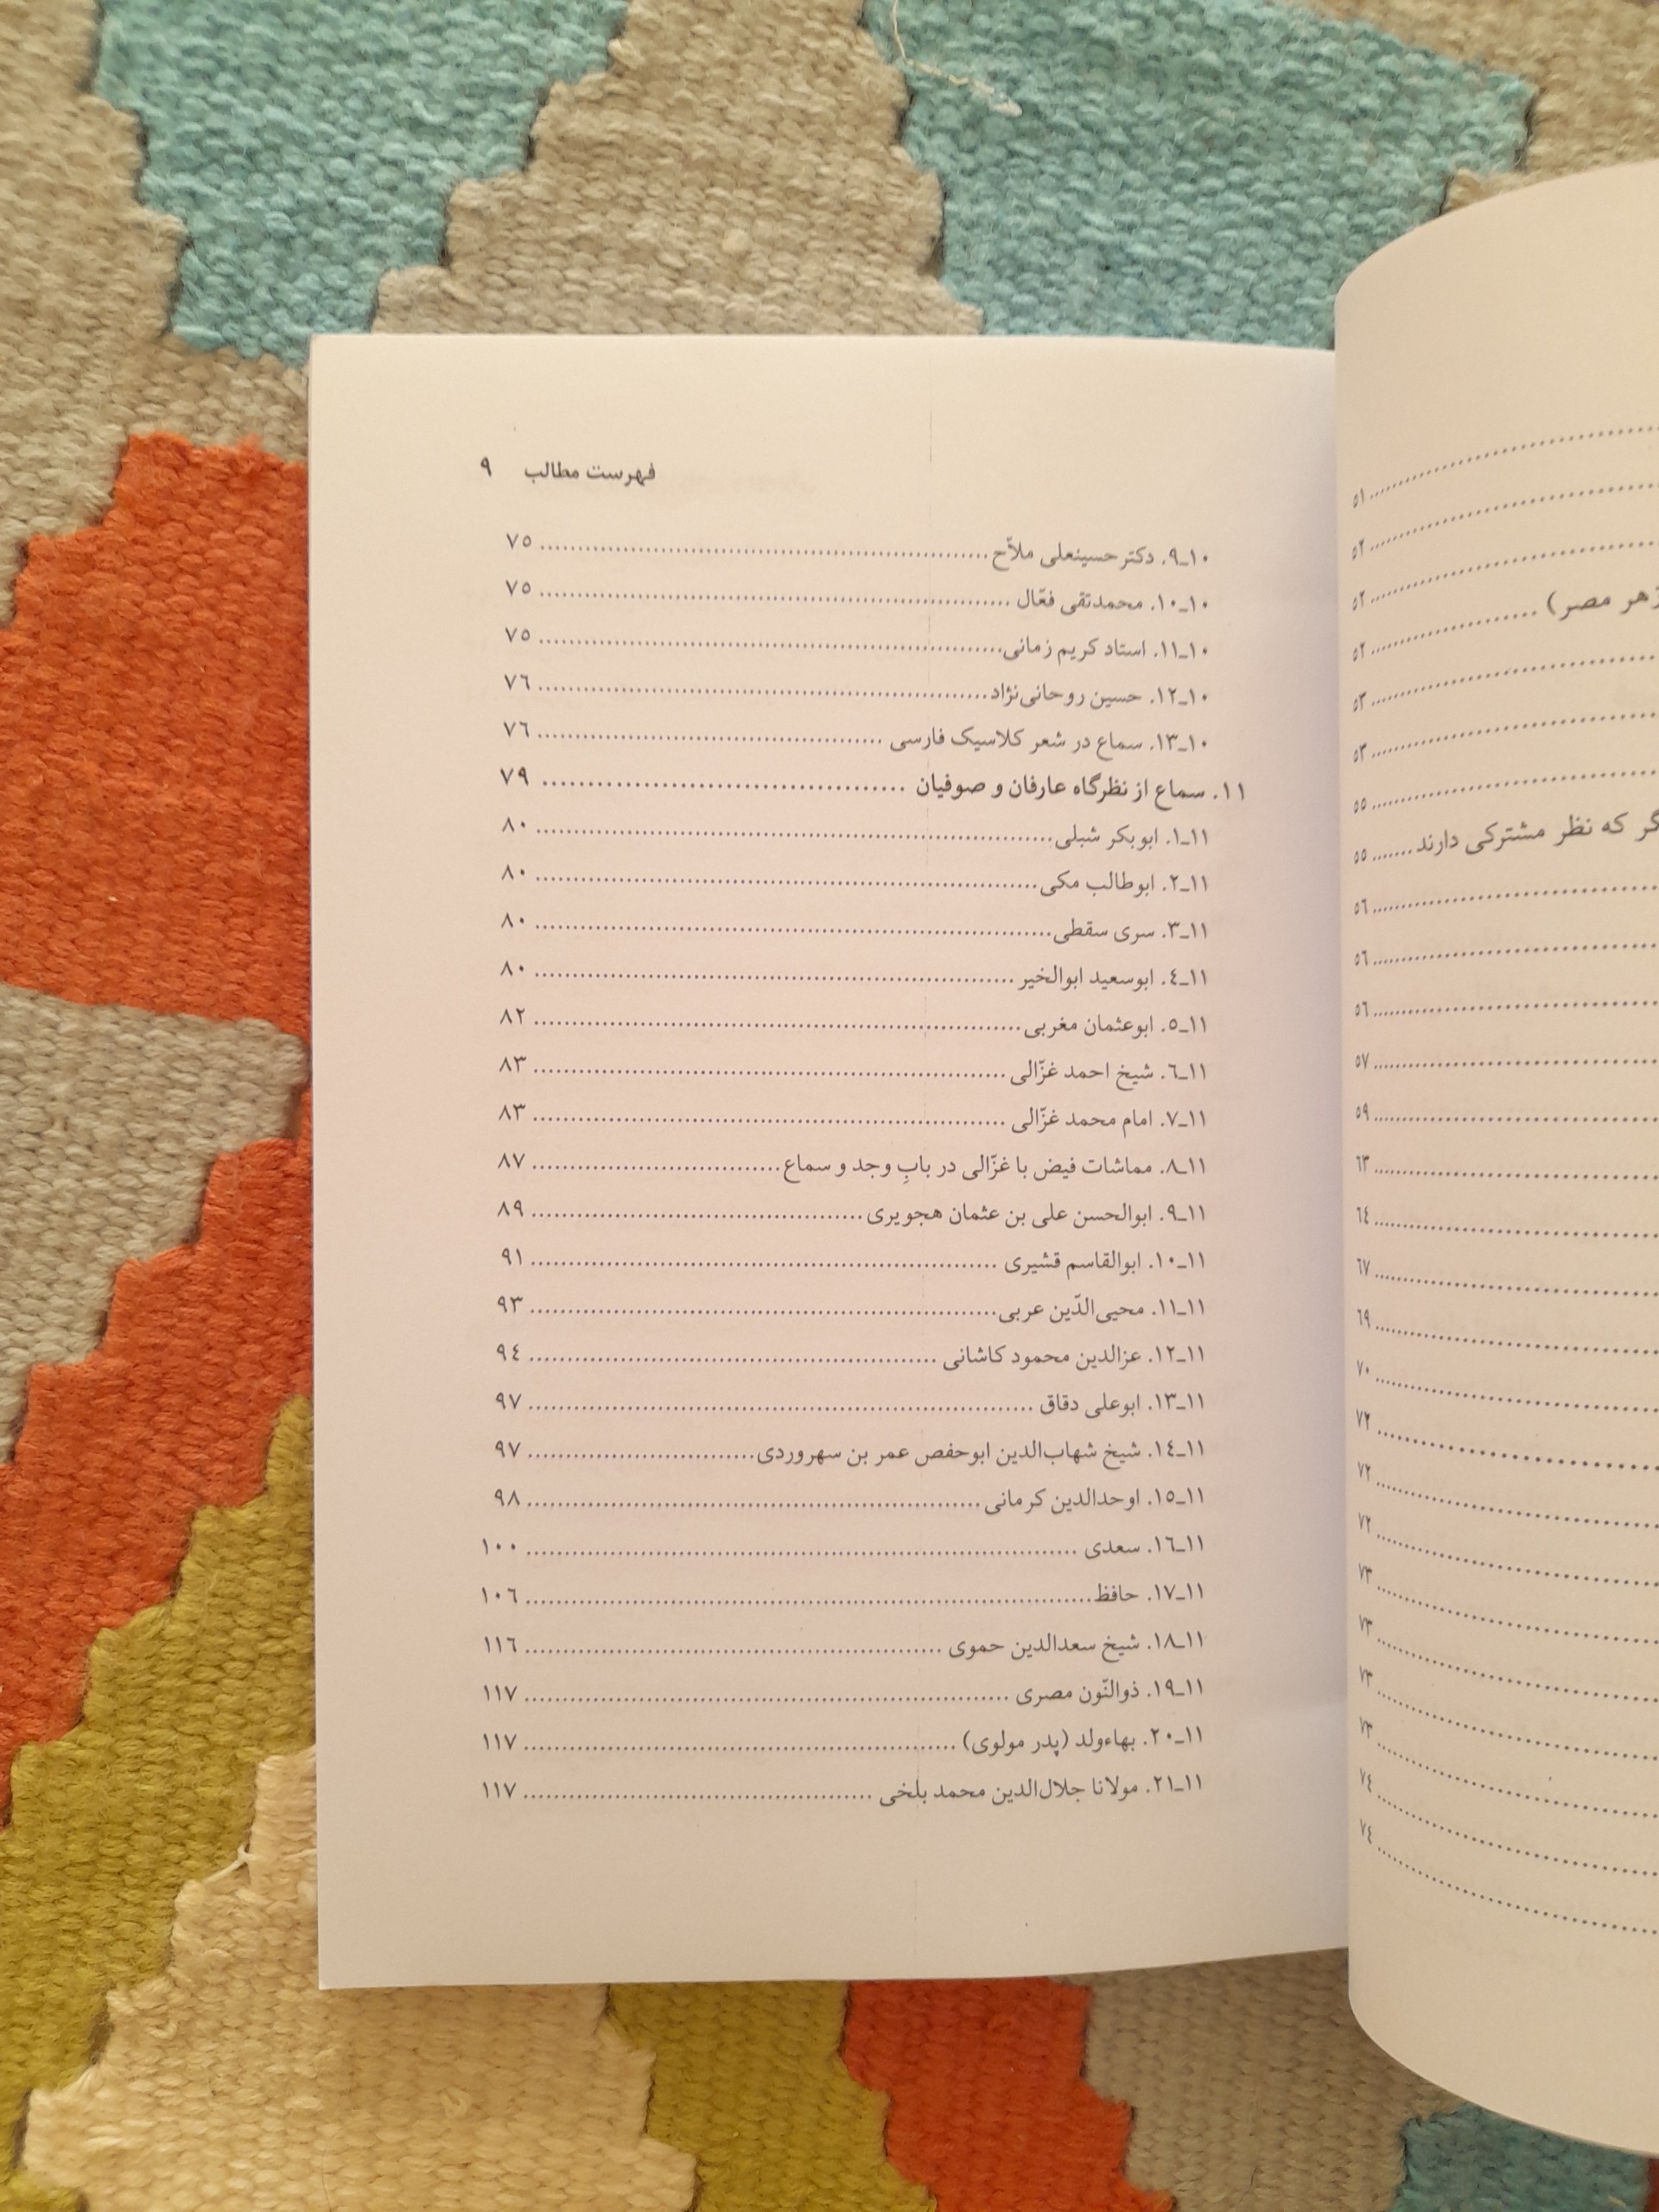 فهرست مطالب ۹
۱۰ـ۹. دکتر حسینعلی ملاّح ........ ۷۵
۱۰ـ۱۰. محمدتقی فعّال ........ ۷۵
۱۰ـ۱۱. استاد کریم زمانی ........ ۷۵
۱۰ـ۱۲. حسین روحانی‌نژاد ........ ۷٦
۱۰ـ۱۳. سماع در شعر کلاسیک فارسی ........ ۷٦
۱۱. سماع از نظرگاه عارفان و صوفیان ........ ۷۹
۱۱ـ۱. ابوبکر شبلی ........ ۸۰
۱۱ـ۲. ابوطالب مکی ........ ۸۰
۱۱ـ۳. سری سقطی ........ ۸۰
۱۱ـ٤. ابوسعید ابوالخیر ........ ۸۰
۱۱ـ۵. ابوعثمان مغربی ........ ۸۲
۱۱ـ٦. شیخ احمد غزّالی ........ ۸۳
۱۱ـ۷. امام محمد غزّالی ........ ۸۳
۱۱ـ۸. مماشات فیض با غزّالی در بابِ وجد و سماع ........ ۸۷
۱۱ـ۹. ابوالحسن علی بن عثمان هجویری ........ ۸۹
۱۱ـ۱۰. ابوالقاسم قشیری ........ ۹۱
۱۱ـ۱۱. محیی‌الدّین عربی ........ ۹۳
۱۱ـ۱۲. عزالدین محمود کاشانی ........ ۹٤
۱۱ـ۱۳. ابوعلی دقاق ........ ۹۷
۱۱ـ۱٤. شیخ شهاب‌الدین ابوحفص عمر بن سهروردی ........ ۹۷
۱۱ـ۱۵. اوحدالدین کرمانی ........ ۹۸
۱۱ـ۱٦. سعدی ........ ۱۰۰
۱۱ـ۱۷. حافظ ........ ۱۰٦
۱۱ـ۱۸. شیخ سعدالدین حموی ........ ۱۱٦
۱۱ـ۱۹. ذوالنّون مصری ........ ۱۱۷
۱۱ـ۲۰. بهاءولد (پدر مولوی) ........ ۱۱۷
۱۱ـ۲۱. مولانا جلال‌الدین محمد بلخی ........ ۱۱۷
۵۱
۵۲
۵۲
مصر) ........ ۵۲
۵۳
۵۳
۵۵
که نظر مشترکی دارند ........ ۵۵
۵٦
۵٦
۵٦
۵۷
۵۹
٦۳
٦٤
٦۷
٦۹
۷۰
۷۲
۷۲
۷۲
۷۳
۷۳
۷۳
۷۳
۷٤
۷٤